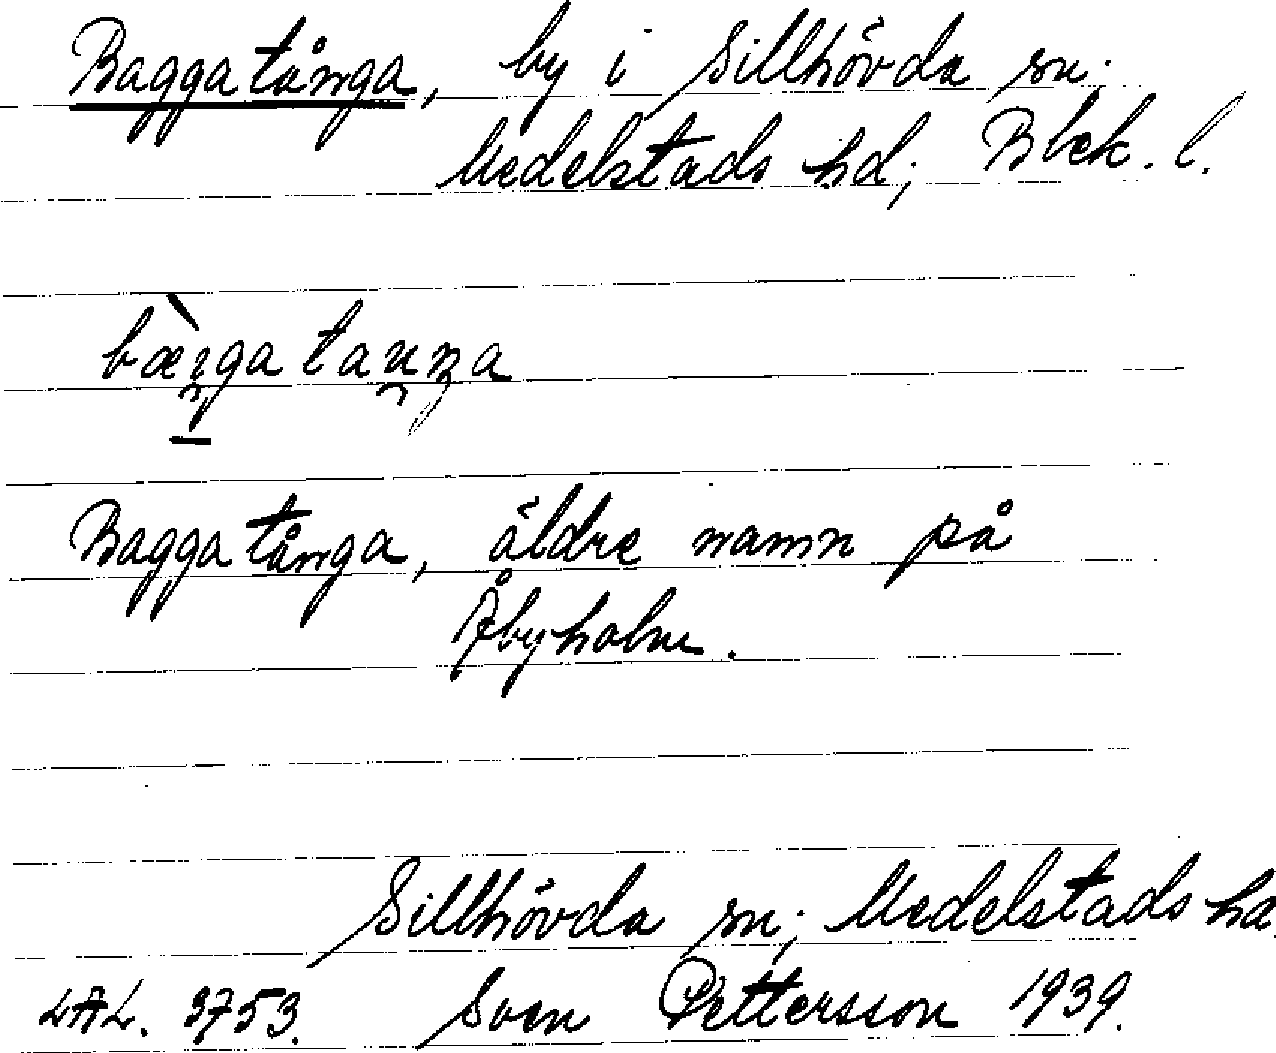 Baggatånga, by i Sillhövda sn.
Medelstads hd; Blek. l.
Baggatånga, äldre namn på
Åbyholm.
Sillhövda sn; Medelstads hd
LAL. 3753. Sven Pettersson 1939.